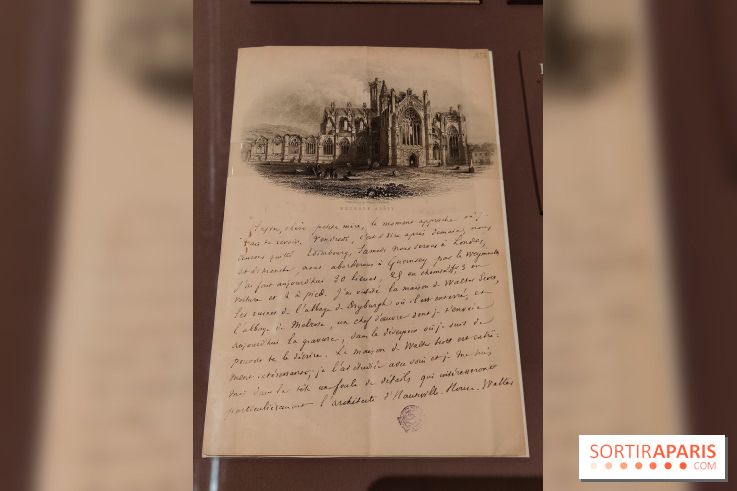 MELROSE ABBEY
Enfin, chère petite mère, le moment approche où j
vais te revoir. Vendredi, c'est à dire après demain, nous
aurons quitté Edimbourg, Samedi nous serons à Londres,
et dimanche, nous aborderons à Guernesey par le Weymouth
J'ai fait aujourd'hui 30 lieues, 23 en chemin de f, 3 en
voiture et 4 à pied. J'ai visité la maison de Walter Scott,
les ruines de l'abbaye de Dryburgh où il est enterré, et
l'abbaye de Melrose, un chef d'œuvre dont je t'envoie
aujourd'hui la gravure, dans le désespoir où je suis de
pouvoir te le décrire. La maison de Walter Scott est extrê-
mement intéressante, je l'ai étudiée avec soin et je me suis
mis dans la tête une foule de détails qui intéresseront
particulièrement l'architecte d'Hauteville-House. Walter
SORTIRAPARIS
.COM